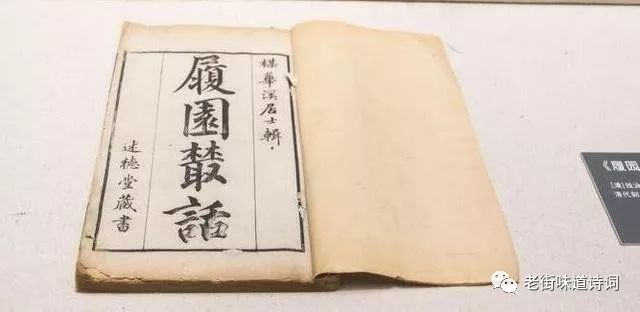 楳華溪居士輯
履園叢話
述德堂藏書
《履园
[清]钱泳
清代刻
老街味道诗词